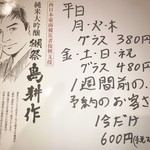 西日本豪雨被災者復興支援
純米大吟醸
獺祭
島耕作
平日
月・火・木
グラス 380円
金・土・日・祝
グラス 480円
1週間前の、
予約のお客さ
今だけ
600円